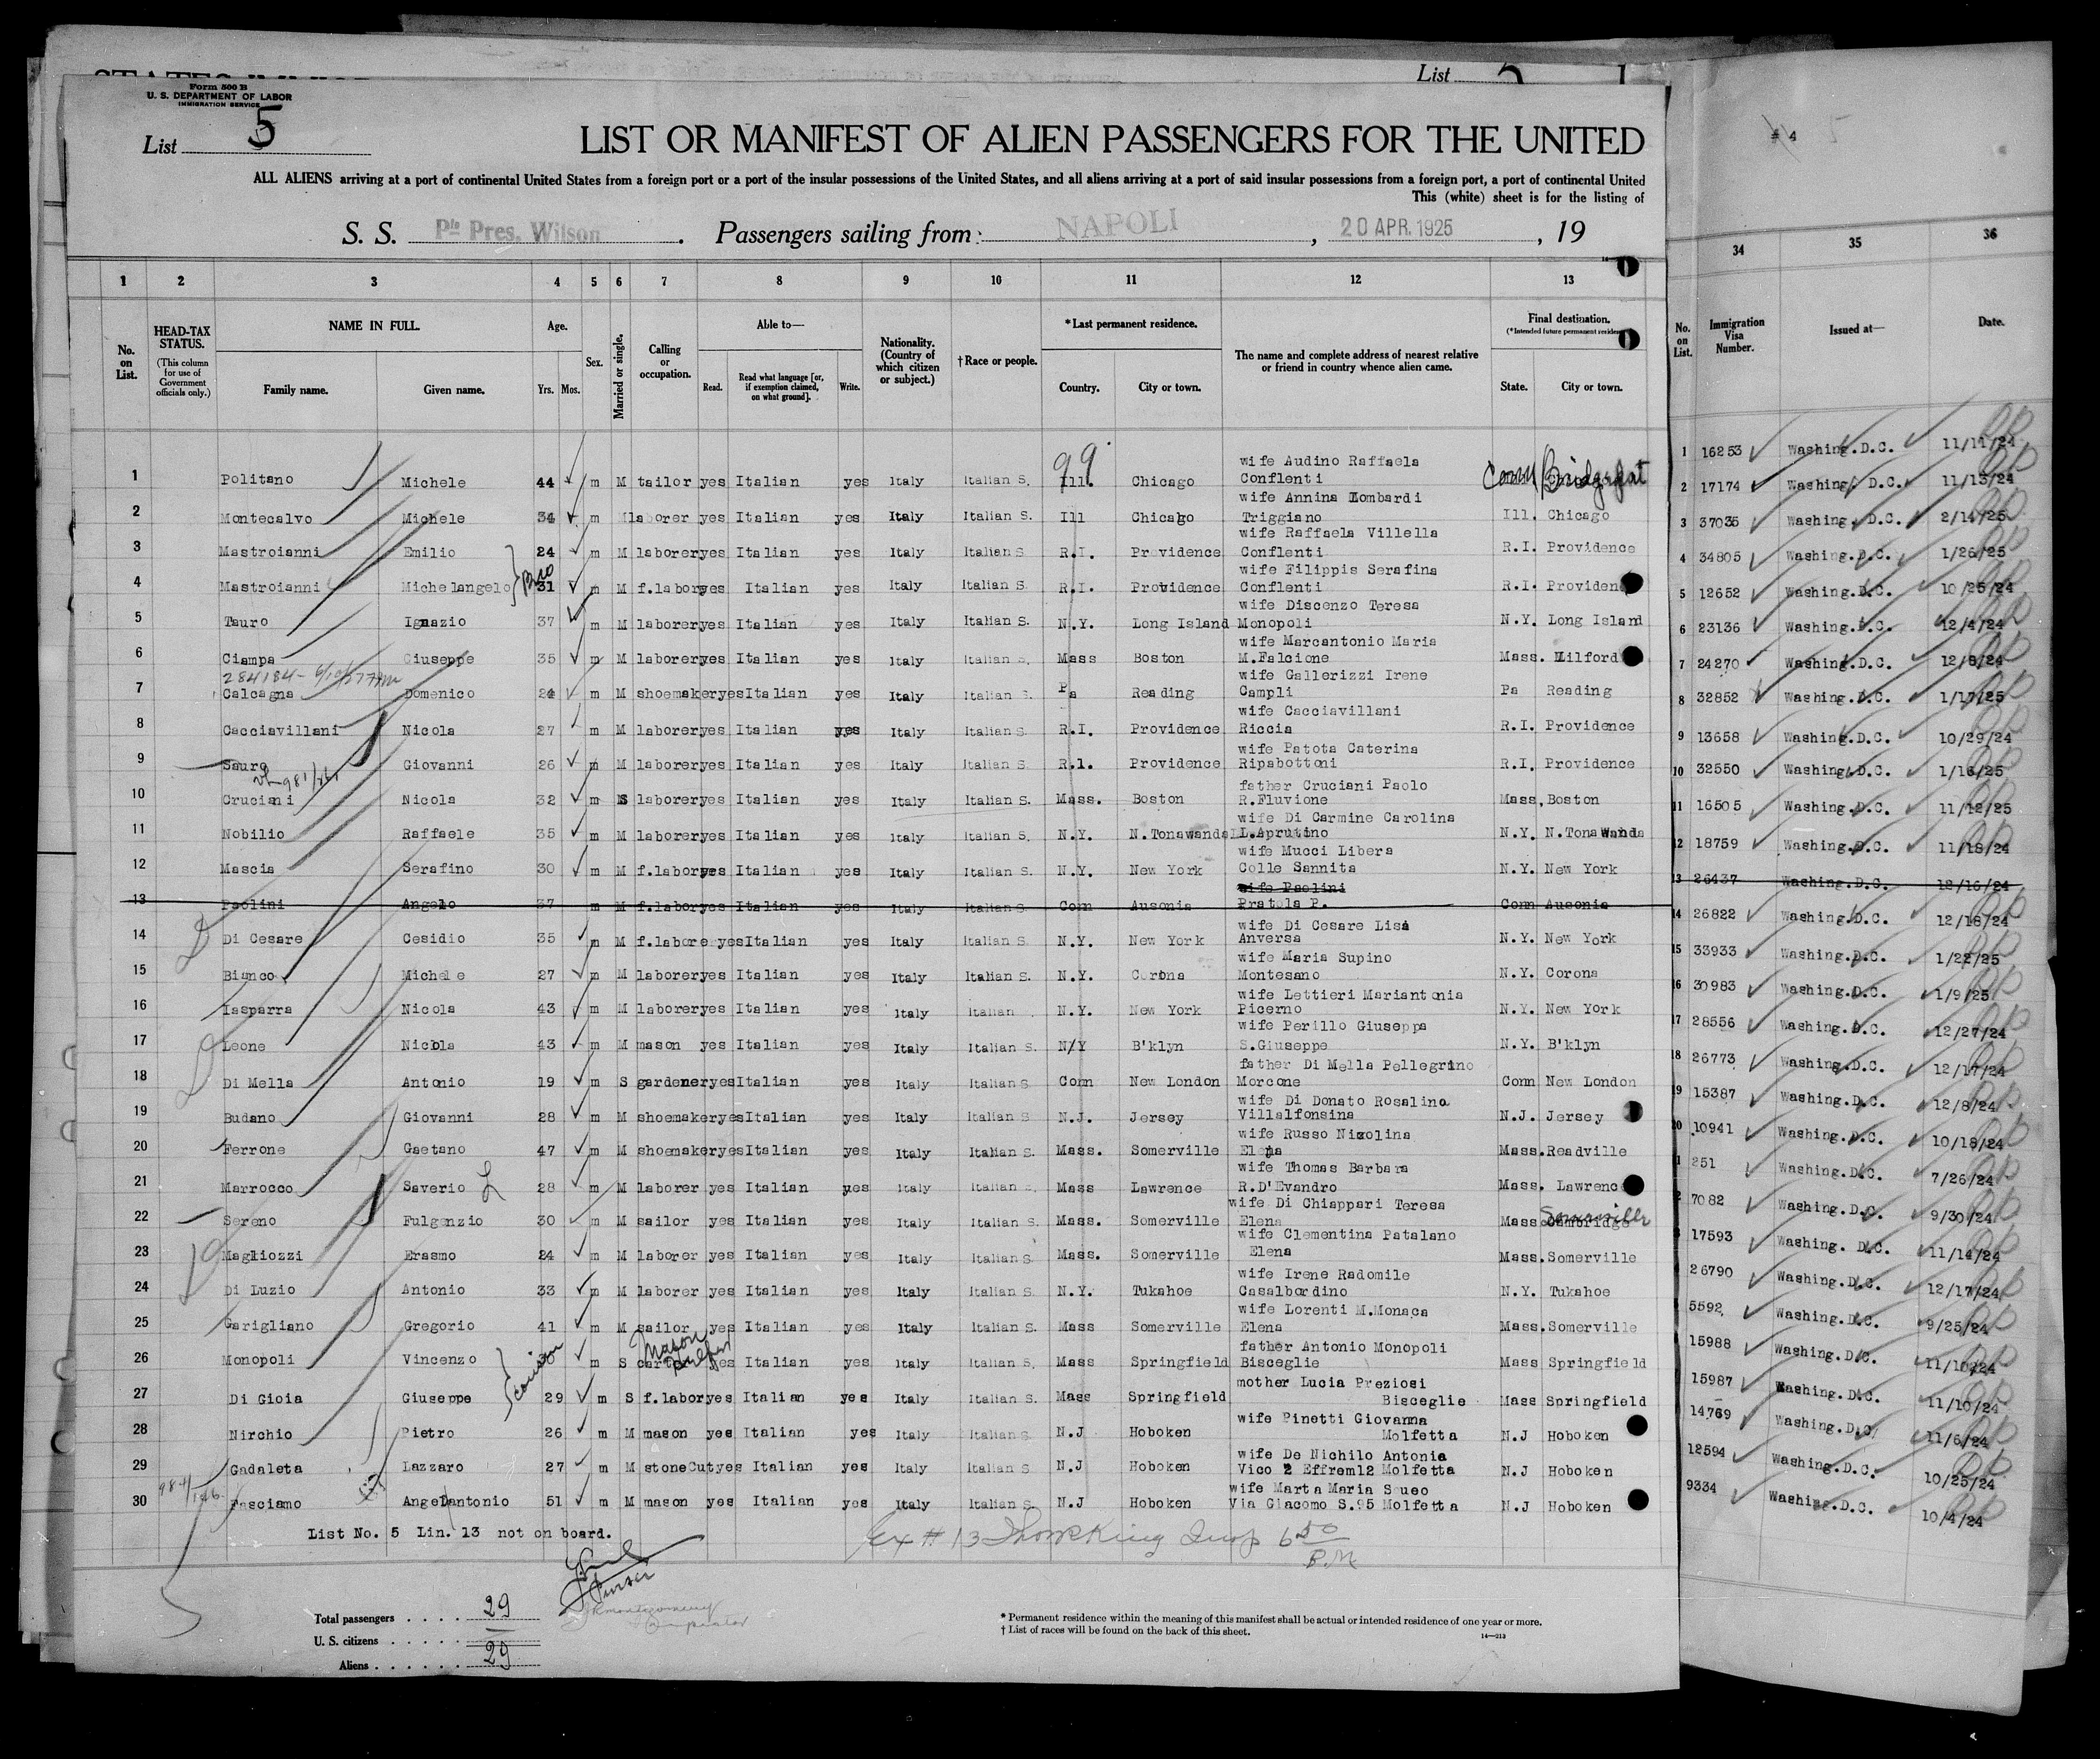 List 5 1
Form 500 B
U. S. DEPARTMENT OF LABOR
IMMIGRATION SERVICE
List 5
# 4
LIST OR MANIFEST OF ALIEN PASSENGERS FOR THE UNITED
ALL ALIENS arriving at a port of continental United States from a foreign port or a port of the insular possessions of the United States, and all aliens arriving at a port of said insular possessions from a foreign port, a port of continental United
This (white) sheet is for the listing of
S. S. Pte Pres. Wilson. Passengers sailing from: NAPOLI, 20 APR. 1925, 19
1 2 3 4 5 6 7 8 9 10 11 12 13 34 35 36
No. on List. HEAD-TAX STATUS. (This column for use of Government officials only.) NAME IN FULL. Family name. Given name. Age. Yrs. Mos. Sex. Married or single. Calling or occupation. Able to— Read. Read what language [or, if exemption claimed, on what ground]. Write. Nationality. (Country of which citizen or subject.) † Race or people. * Last permanent residence. Country. City or town. The name and complete address of nearest relative or friend in country whence alien came. Final destination. (* Intended future permanent residence) State. City or town. No. on List. Immigration Visa Number. Issued at— Date.
99
1 Politano Michele 44 m M tailor yes Italian yes Italy Italian S. Ill. Chicago wife Audino Raffaela Conflenti Conn Bridgeport 1 16253 Washing.D.C. 11/11/24
2 Montecalvo Michele 34 m M laborer yes Italian yes Italy Italian S. Ill Chicago wife Annina Lombardi Triggiano Ill. Chicago 2 17174 Washing. D.C. 11/13/24
3 Mastroianni Emilio 24 m M laborer yes Italian yes Italy Italian S R.I. Providence wife Raffaela Villella Conflenti R.I. Providence 3 37035 Washing. D.C. 2/14/25
4 Mastroianni Michelangelo Bro 31 m M f.labor yes Italian yes Italy Italian S. R.I. Providence wife Filippis Serafina Conflenti R.I. Providence 4 34805 Washing.D.C. 1/26/25
5 Tauro Ignazio 37 m M laborer yes Italian yes Italy Italian S. N.Y. Long Island wife Discenzo Teresa Monopoli N.Y. Long Island 5 12652 Washing.D.C. 10/25/24
6 Ciampa Giuseppe 35 m M laborer yes Italian yes Italy Italian S. Mass Boston wife Marcantonio Maria M.Falcione Mass. Milford 6 23136 Washing.D.C. 12/4/24
284184-
7 Calcagna Domenico 24 m M shoemaker yes Italian yes Italy Italian S. Pa Reading wife Gallerizzi Irene Campli Pa Reading 7 24270 Washing.D.C. 12/8/24
8 Cacciavillani Nicola 27 m M laborer yes Italian yes Italy Italian S R.I. Providence wife Cacciavillani Riccia R.I. Providence 8 32852 Washing.D.C. 1/17/25
9 Sauro Giovanni 26 m M laborer yes Italian yes Italy Italian S R.I. Providence wife Patota Caterina Ripabottoni R.I. Providence 9 13658 Washing.D.C. 10/29/24
10 Cruciani Nicola 32 m S laborer yes Italian yes Italy Italian S. Mass. Boston father Cruciani Paolo R.Fluvione Mass. Boston 10 32550 Washing.D.C. 1/16/25
11 Nobilio Raffaele 35 m M laborer yes Italian yes Italy Italian S. N.Y. N.Tonawanda wife Di Carmine Carolina L.Aprutino N.Y. N.Tonawanda 11 16505 Washing.D.C. 11/12/25
12 Mascia Serafino 30 m M f.labor yes Italian yes Italy Italian S. N.Y. New York wife Mucci Libera Colle Sannita N.Y. New York 12 18759 Washing.D.C. 11/18/24
13 Paolini Angelo 37 m M f.labor yes Italian yes Italy Italian S Conn Ausonia wife Paolini Pratola P. Conn Ausonia 13 26437 Washing.D.C. 12/16/24
14 Di Cesare Cesidio 35 m M f.labore yes Italian yes Italy Italian S N.Y. New York wife Di Cesare Lisa Anversa N.Y. New York 14 26822 Washing.D.C. 12/18/24
15 Bianco Michele 27 m M laborer yes Italian yes Italy Italian S N.Y. Corona wife Maria Supino Montesano N.Y. Corona 15 33933 Washing.D.C. 1/22/25
16 Iasparra Nicola 43 m M laborer yes Italian yes Italy Italian N.Y. New York wife Lettieri Mariantonia Picerno N.Y. New York 16 30983 Washing.D.C. 1/9/25
17 Leone Nicola 43 m M mason yes Italian yes Italy Italian S. N/Y B'klyn wife Perillo Giuseppa S.Giuseppe N.Y. B'klyn 17 28556 Washing.D.C. 12/27/24
18 Di Mella Antonio 19 m S gardener yes Italian yes Italy Italian S Conn New London father Di Mella Pellegrino Morcone Conn New London 18 26773 Washing.D.C. 12/17/24
19 Budano Giovanni 28 m M shoemaker yes Italian yes Italy Italian S N.J. Jersey wife Di Donato Rosalina Villalfonsina N.J. Jersey 19 15387 Washing.D.C. 12/8/24
20 Ferrone Gaetano 47 m M shoemaker yes Italian yes Italy Italian S. Mass. Somerville wife Russo Nicolina Elena Mass. Readville 20 10941 Washing.D.C. 10/18/24
21 Marrocco Saverio 28 m M laborer yes Italian yes Italy Italian S. Mass Lawrence wife Thomas Barbara R.D'Evandro Mass. Lawrence 1 251 Washing.D.C. 7/26/24
22 Sereno Fulgenzio 30 m M sailor yes Italian yes Italy Italian S Mass. Somerville wife Di Chiappari Teresa Elena Mass. Cambridge Somerville 2 7082 Washing.D.C. 9/30/24
23 Magliozzi Erasmo 24 m M laborer yes Italian yes Italy Italian S Mass. Somerville wife Clementina Patalano Elena Mass. Somerville 17593 Washing. D.C. 11/14/24
24 Di Luzio Antonio 33 m M laborer yes Italian yes Italy Italian S. N.Y. Tukahoe wife Irene Radomile Casalbordino N.Y. Tukahoe 26790 Washing.D.C. 12/17/24
25 Garigliano Gregorio 41 m M sailor yes Italian yes Italy Italian S. Mass Somerville wife Lorenti M.Monaca Elena Mass. Somerville 5592 Washing.D.C. 9/25/24
26 Monopoli Vincenzo cousin 30 m S Mason yes Italian yes Italy Italian S. Mass Springfield father Antonio Monopoli Bisceglie Mass Springfield 15988 Washing.D.C. 11/10/24
27 Di Gioia Giuseppe 29 m S f.labor yes Italian yes Italy Italian S. Mass Springfield mother Lucia Preziosi Bisceglie Mass Springfield 15987 Washing.D.C. 11/10/24
28 Nirchio Pietro 26 m M mason yes Italian yes Italy Italian S N.J Hoboken wife Pinetti Giovanna Molfetta N.J Hoboken 14769 Washing.D.C. 11/6/24
29 Gadaleta Lazzaro 27 m M stoneCut yes Italian yes Italy Italian S N.J Hoboken wife De Nichilo Antonia Vico 2 Effrem12 Molfetta N.J Hoboken 12594 Washing.D.C. 10/25/24
30 Fasciamo Angelantonio 51 m M mason yes Italian yes Italy Italian S. N.J Hoboken wife Marta Maria Sueo Via Giacomo S.95 Molfetta N.J Hoboken 9334 Washing.D.C. 10/4/24
List No. 5 Lin. 13 not on board.
Ex # 13 Insp 6 50 P.M
Purser
Total passengers . . . . 29
U. S. citizens . . . . .
Aliens . . . . . . 29
* Permanent residence within the meaning of this manifest shall be actual or intended residence of one year or more.
† List of races will be found on the back of this sheet.
14—213